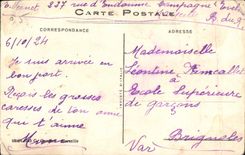 237 rue d'Endoume
CARTE POSTALE
CORRESPONDANCE
ADRESSE
6/10/24
Je suis arrivée en
bon port.
Reçois les grosses
caresses de ton amie
qui t'aime
Mademoiselle
Léontine
Ecole Supérieure
de garçons
Brignoles
Var